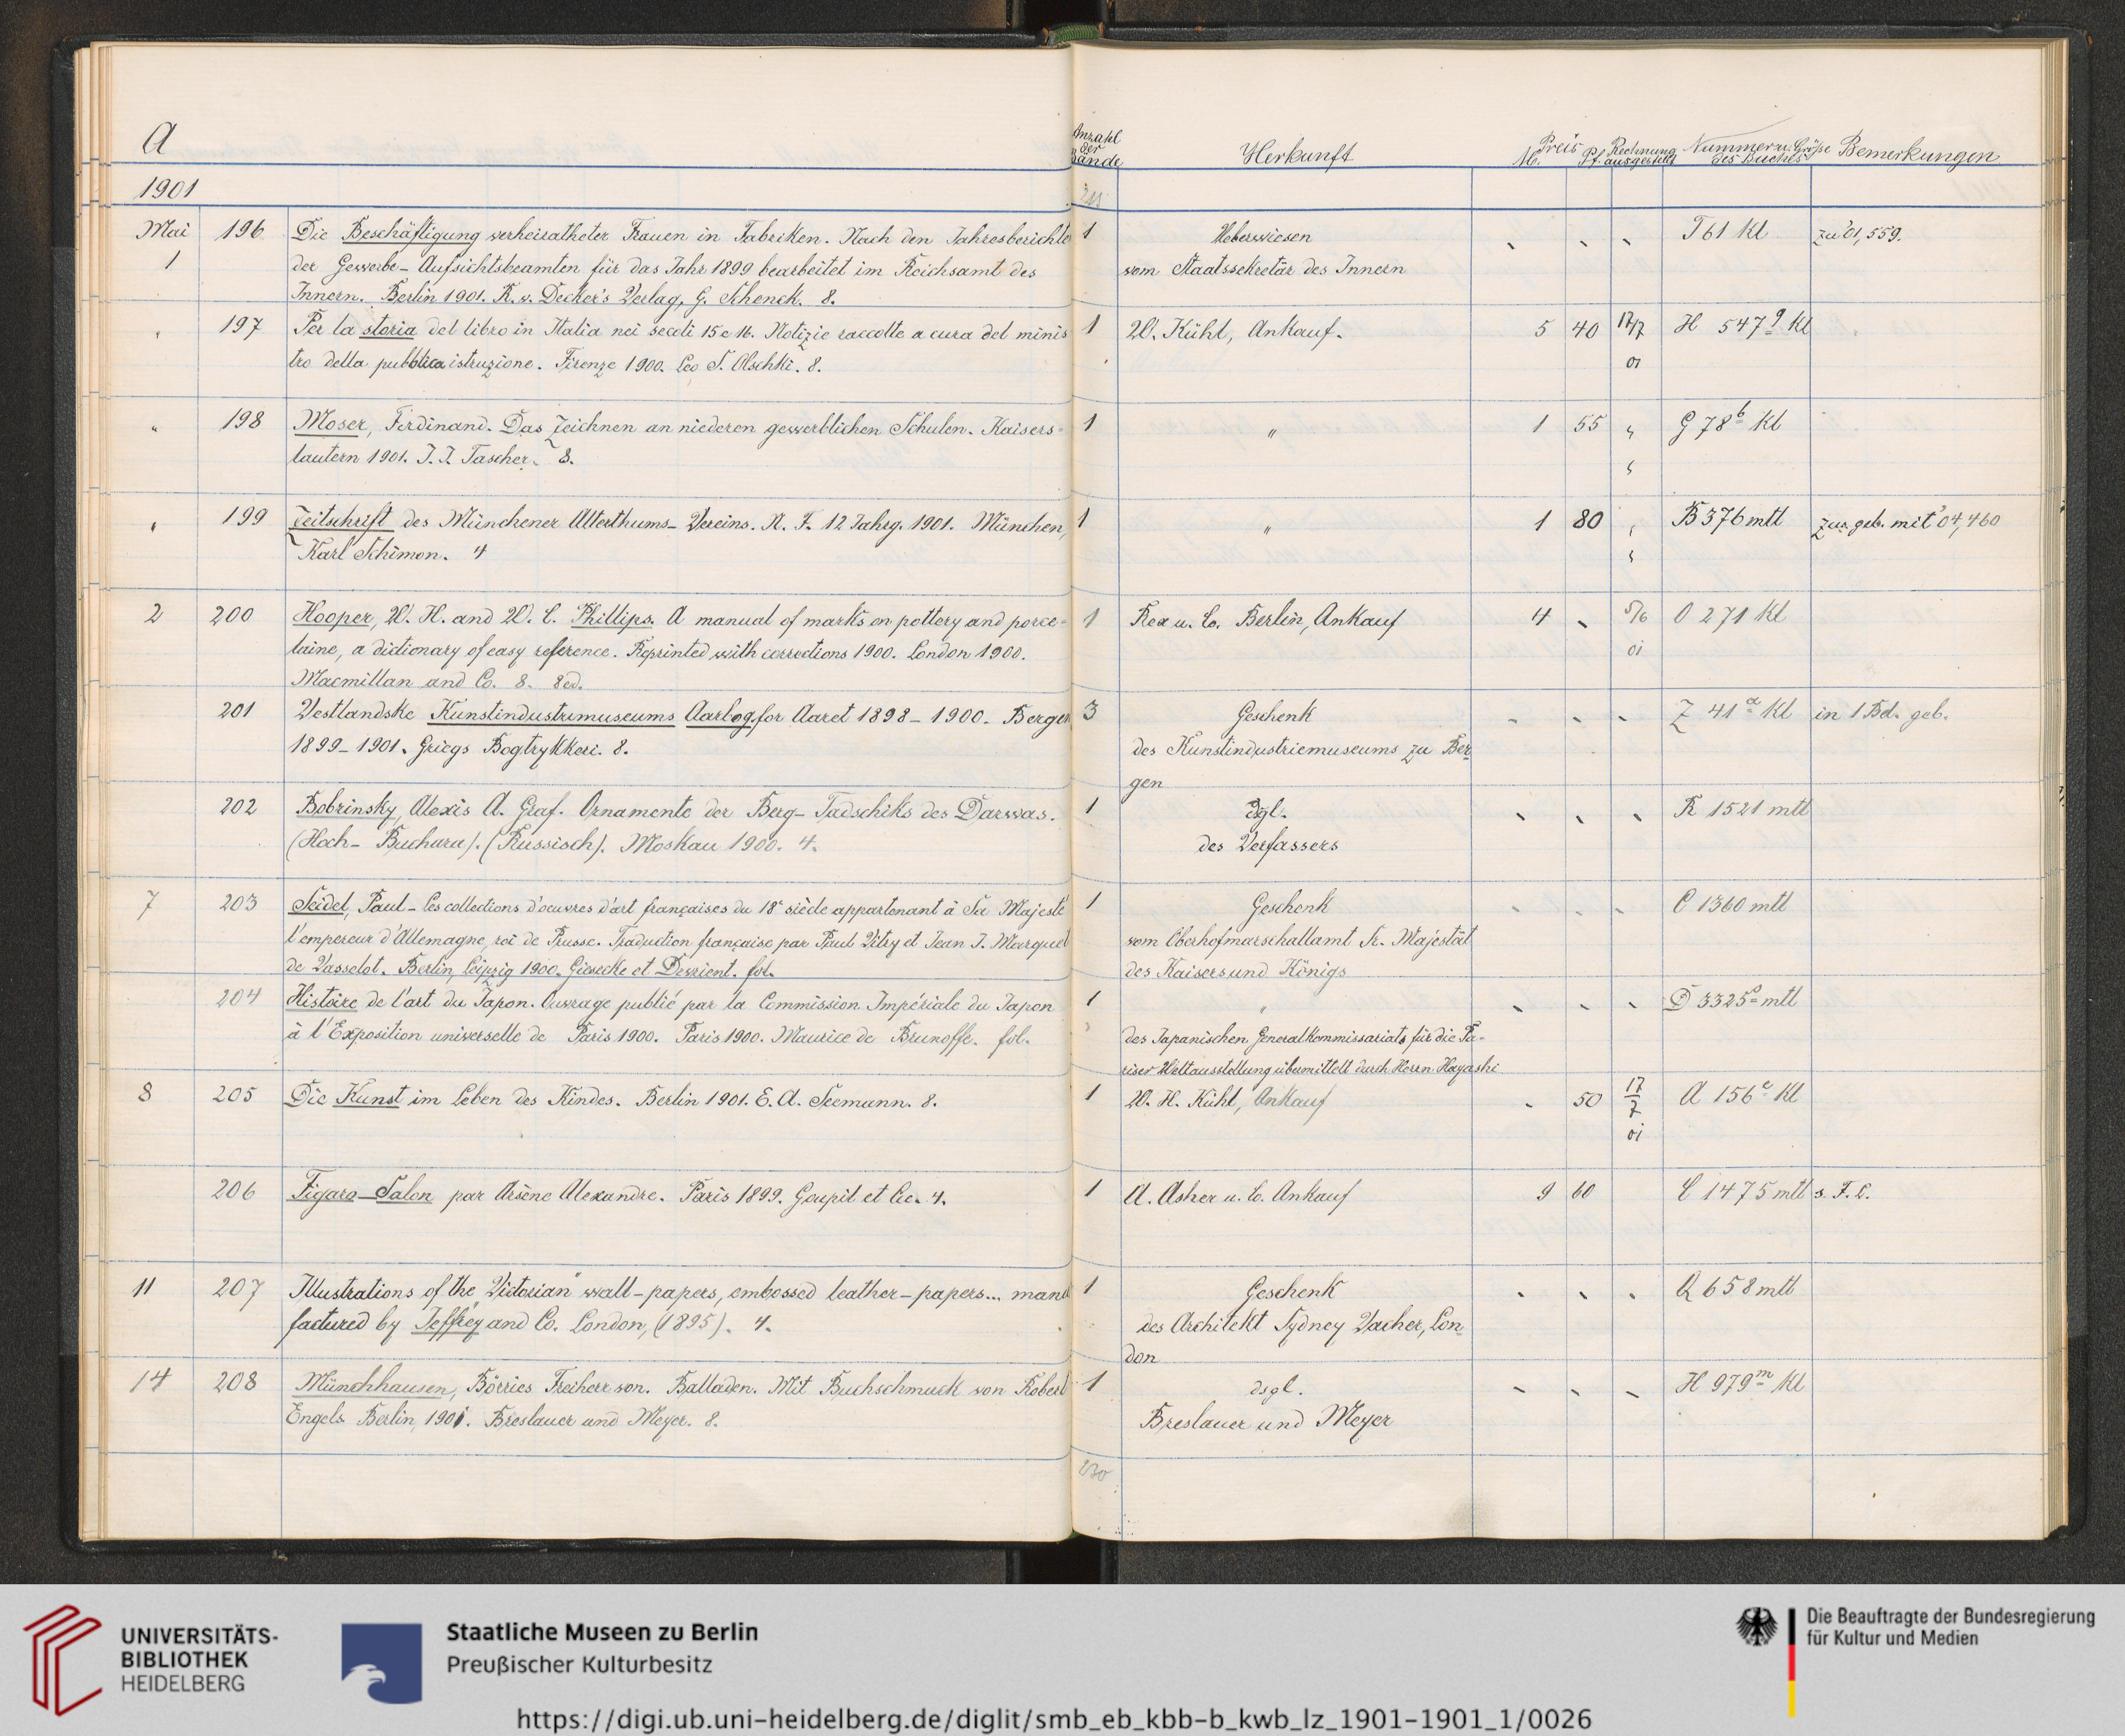 A
Anzahl der Bände Herkunft Preis M. Pf. Rechnung ausgestellt Nummer u. Größe des Buches Bemerkungen
1901
Mai 196 Die Beschäftigung verheiratheter Frauen in Fabriken. Nach den Jahresberichte 1 Ueberwiesen T 61 kl zu '01, 559.
1 der Gewerbe-Aufsichtsbeamten für das Jahr 1899 bearbeitet im Reichsamt des vom Staatssekretär des Innern
Innern. Berlin 1901. R. v. Decker's Verlag, G. Schenck. 8.
" 197 Per la storia del libro in Italia nei secoli 15 e 16. Notizie raccolte a cura del minis 1 W. Kühl, Ankauf. 5 40 17/7 H 547 q kl
tro della pubblica istruzione. Firenze 1900. Leo S. Olschki. 8. 01
" 198 Moser, Ferdinand. Das Zeichnen an niederen gewerblichen Schulen. Kaisers= 1 " 1 55 " G 78 b kl
lautern 1901. J. J. Tascher. 8. "
" 199 Zeitschrift des Münchener Alterthums-Vereins. N. F. 12 Jahrg. 1901. München, 1 " 1 80 " B 376 mtl zus. geb. mit '04,460
Karl Schimon. 4 "
2 200 Hooper, W. H. and W. C. Phillips. A manual of marks on pottery and porce= 1 Rex u. Co. Berlin, Ankauf 4 - 5/6 O 271 kl
laine, a dictionary of easy reference. Reprinted with corrections 1900. London 1900. 01
Macmillan and Co. 8. 8ed.
201 Vestlandske Kunstindustrimuseums Aarbog for Aaret 1898-1900. Bergen 3 Geschenk Z 41 a kl in 1 Bd. geb.
1899-1901. Griegs Bogtrykkeri. 8. des Kunstindustriemuseums zu Ber
gen
202 Bobrinsky, Alexis A. Graf. Ornamente der Berg-Tadschiks des Darwas. 1 dsgl. R 1521 mtl
(Hoch-Buchara). (Russisch). Moskau 1900. 4. des Verfassers
7 203 Seidel, Paul - Les collections d'oeuvres d'art françaises du 18e siècle appartenant à Sa Majesté 1 Geschenk C 1360 mtl
l'empereur d'Allemagne, roi de Prusse. Traduction française par Paul Vitry et Jean J. Marquet vom Oberhofmarschallamt Sr. Majestät
de Vasselot. Berlin, Leipzig 1900. Giesecke et Devrient. fol. des Kaisers und Königs
204 Histoire de l'art du Japon. Ouvrage publié par la Commission Impériale du Japon 1 " D 3325 mtl
à l'Exposition universelle de Paris 1900. Paris 1900. Maurice de Brunoffe. fol. des Japanischen Generalkommissariats für die Pa-
riser Weltausstellung übermittelt durch Herrn Hayashi
8 205 Die Kunst im Leben des Kindes. Berlin 1901. E. A. Seemann. 8. 1 W. H. Kühl, Ankauf - 50 17/7 A 156 c kl
01
206 Figaro-Salon par Arsène Alexandre. Paris 1899. Goupil et Cie. 4. 1 A. Asher u. Co. Ankauf 9 60 C 1475 mtl s. F. C.
11 207 Illustrations of the "Victorian" wall-papers, embossed leather-papers... manu 1 Geschenk Q 658 mtl
factured by Jeffrey and Co. London, (1895). 4. des Architekt Sydney Vacher, Lon
don
14 208 Münchhausen, Börries Freiherr von. Balladen. Mit Buchschmuck von Robert 1 dsgl. H 979 m kl
Engels Berlin, 1901. Breslauer und Meyer. 8. Breslauer und Meyer
230
UNIVERSITÄTS-
BIBLIOTHEK
HEIDELBERG
Staatliche Museen zu Berlin
Preußischer Kulturbesitz
Die Beauftragte der Bundesregierung
für Kultur und Medien
https://digi.ub.uni-heidelberg.de/diglit/smb_eb_kbb-b_kwb_lz_1901-1901_1/0026